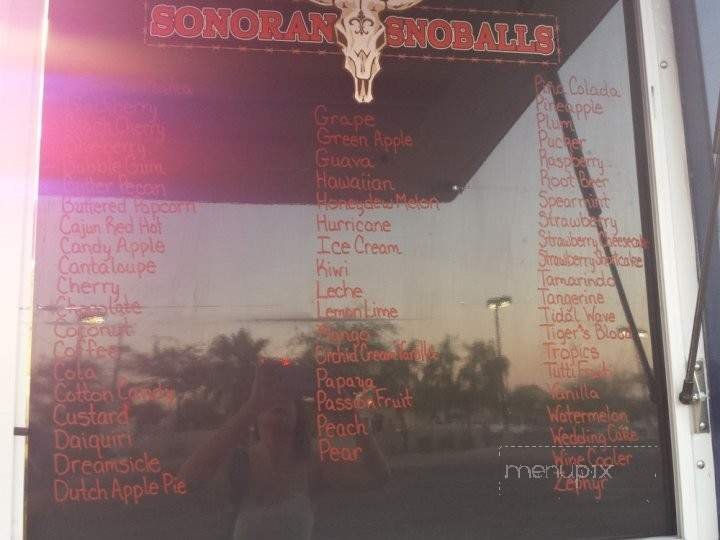 SONORAN SNOBALLS
Bubble Gum
Butter Pecan
Buttered Popcorn
Cajun Red Hot
Candy Apple
Cantaloupe
Cherry
Chocolate
Coconut
Coffee
Cola
Cotton Candy
Custard
Daiquiri
Dreamsicle
Dutch Apple Pie
Grape
Green Apple
Guava
Hawaiian
Honeydew Melon
Hurricane
Ice Cream
Kiwi
Leche
Lemon Lime
Mango
Orchid Cream Vanilla
Papaya
Passion Fruit
Peach
Pear
Piña Colada
Pineapple
Plum
Pucker
Raspberry
Root Beer
Spearmint
Strawberry
Strawberry Cheesecake
Strawberry Shortcake
Tamarindo
Tangerine
Tidal Wave
Tiger's Blood
Tropics
Tutti Fruiti
Vanilla
Watermelon
Wedding Cake
Wine Cooler
Zephyr
menupix